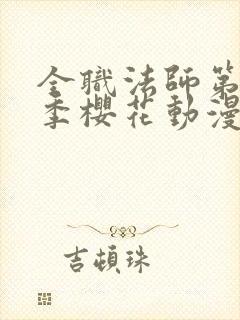 全職法師第
季櫻花動漫
吉頓珠